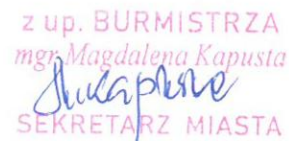 z up. BURMISTRZA
mgr Magdalena Kapusta
SEKRETARZ MIASTA